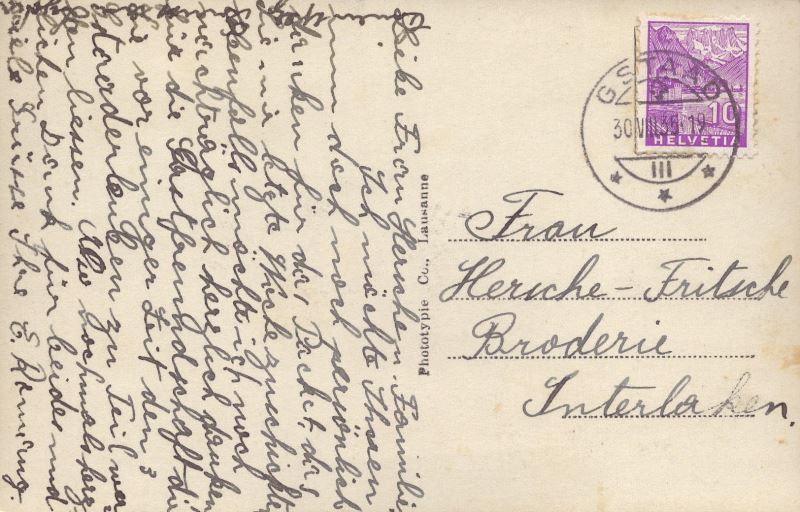 Liebe Frau Hersche u. Familie
Ich möchte Ihnen
nun doch noch persönlich
danken für das Packet, das
Sie mir letzte Woche zuschickten
Ebenfalls möchte ich noch
nachträglich herzlich danken
für die Gastfreundschaft die
Sie vor einiger Zeit den 3
zu Teil wer-
den liessen. Also nochmals herz-
lichen Dank für beides und
viele Grüsse Ihre E.
Phototypie Co., Lausanne
GSTAAD
30.VIII.36-19
III
10
HELVETIA
Frau
Hersche-Fritsche
Broderie
Interlaken.